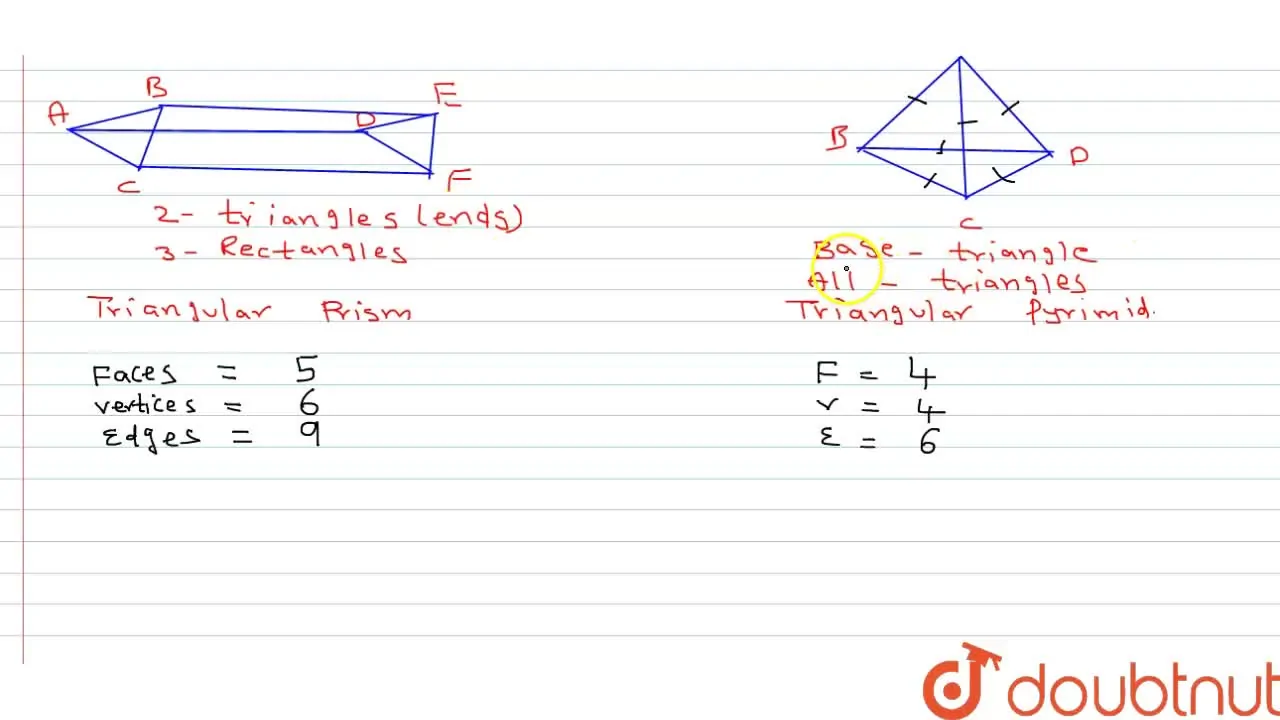 B
A
D
E
C
F
2- triangles (ends)
3- Rectangles
Triangular Prism
Faces = 5
vertices = 6
Edges = 9
B
D
C
Base - triangle
All - triangles
Triangular Pyrimid.
F = 4
v = 4
E = 6
doubtnut